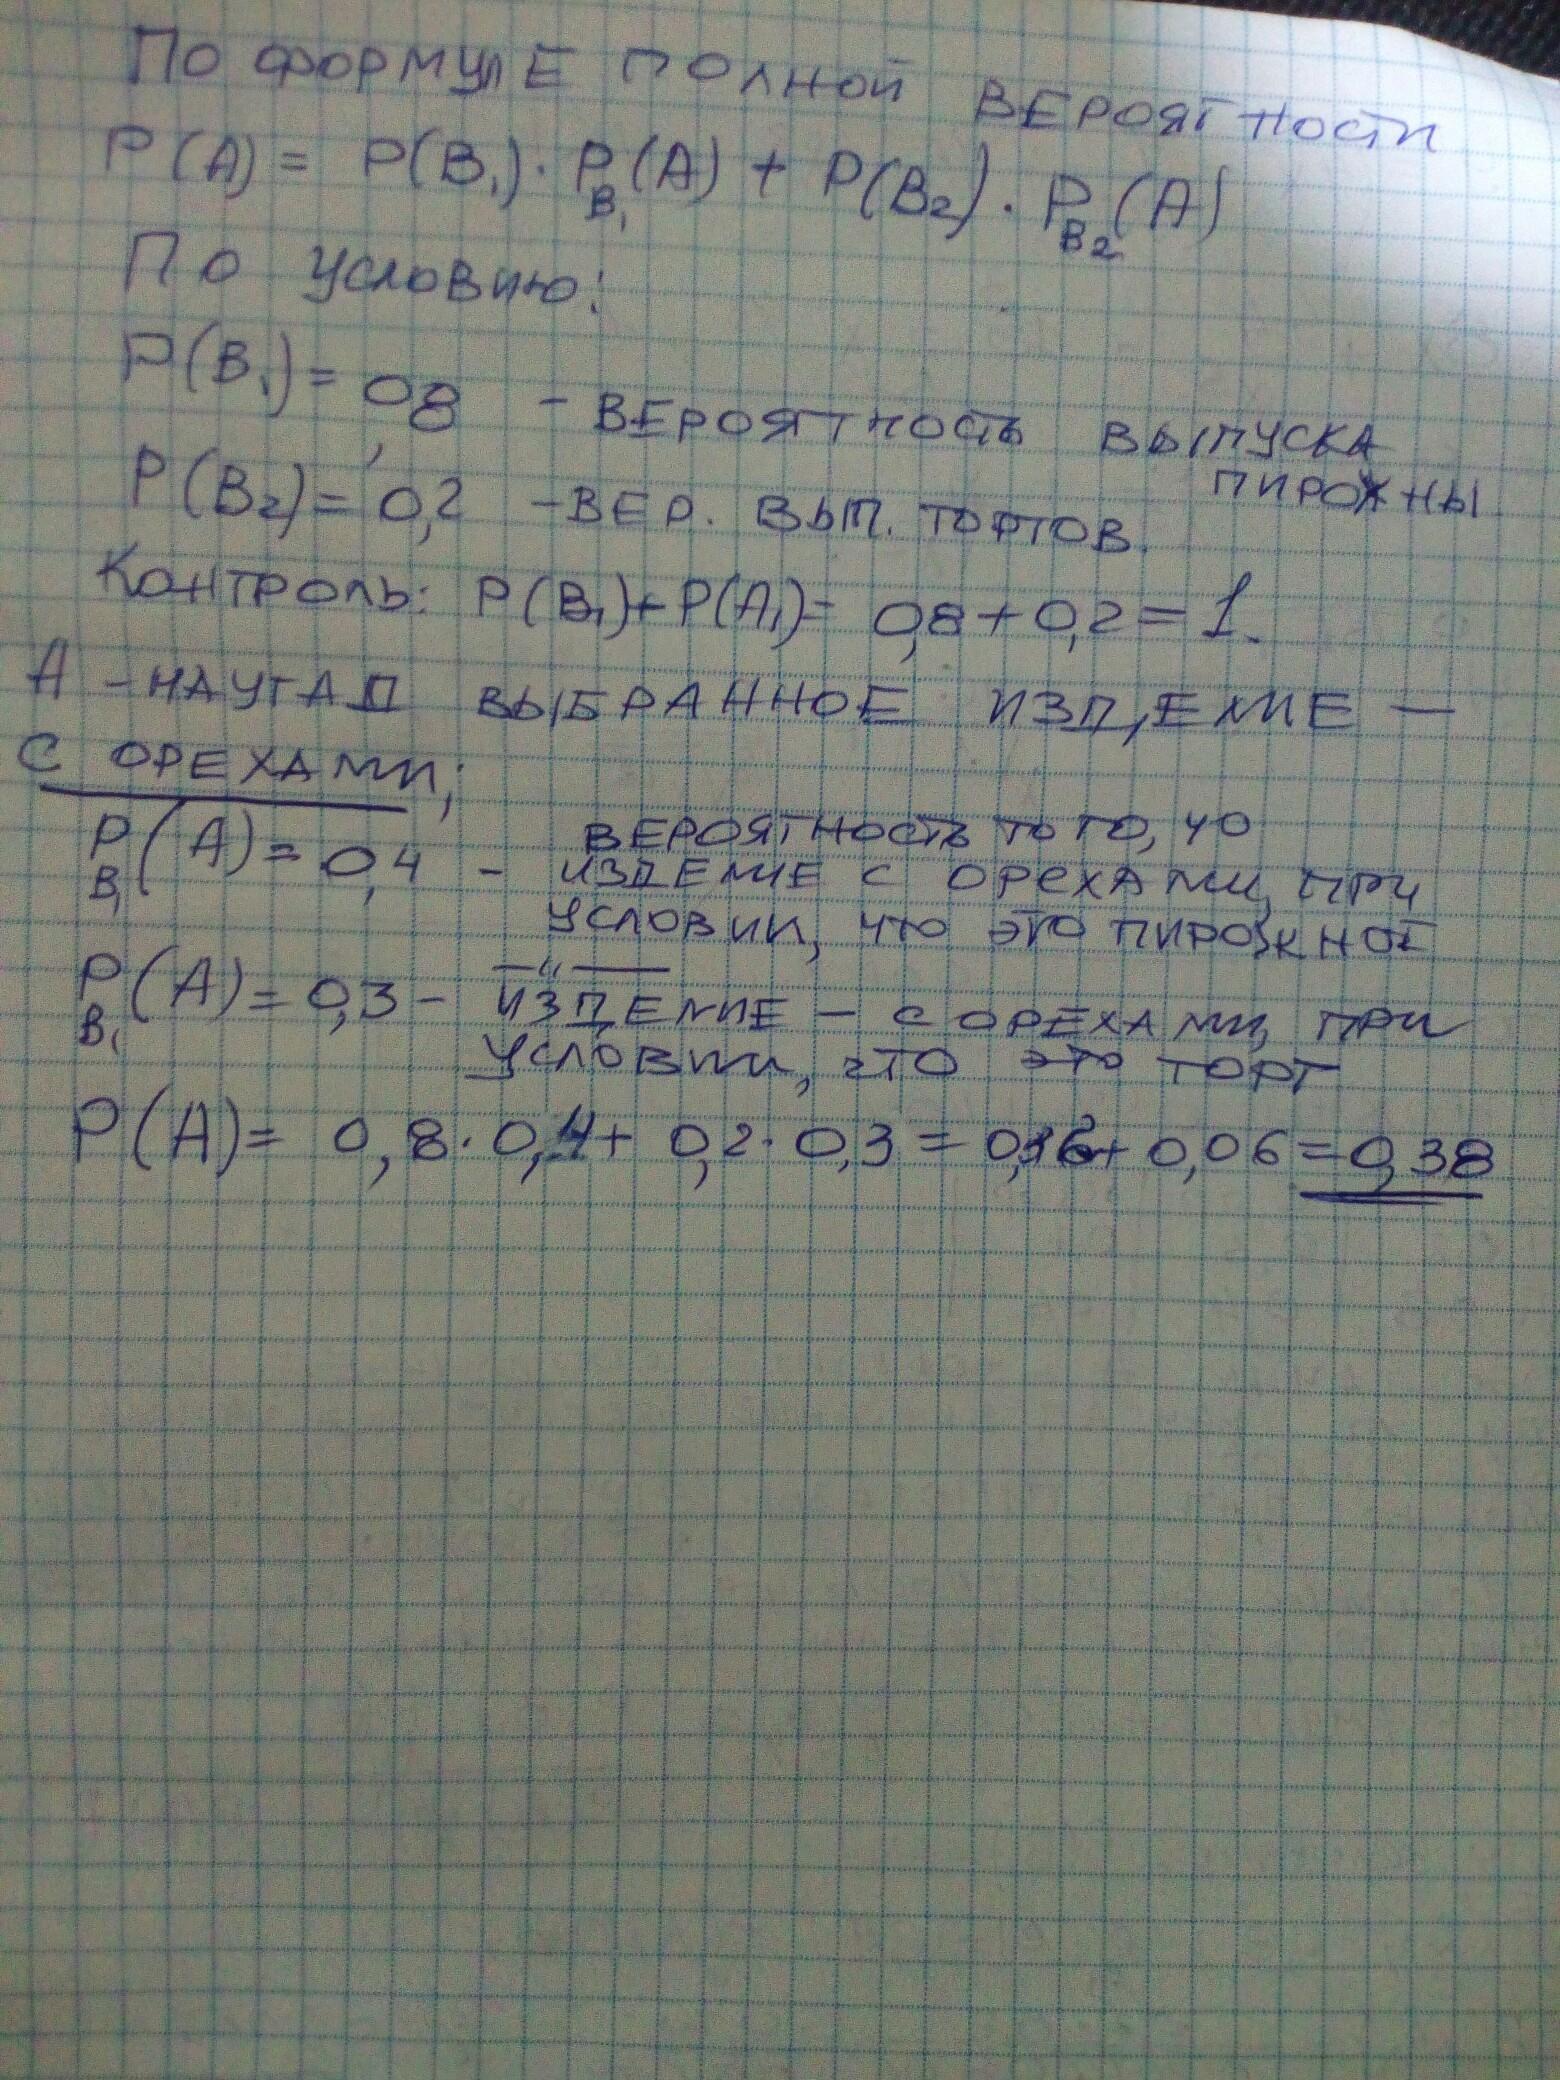 По формуле полной вероятности
P(A) = P(B₁)·P_B₁(A) + P(B₂)·P_B₂(A)
По условию:
P(B₁) = 0,8 - вероятность выпуска
пирожны
P(B₂) = 0,2 - вер. вып. тортов.
Контроль: P(B₁)+P(A₁)= 0,8+0,2=1.
A - наугад выбранное изделие —
с орехами;
вероятность того, чо
P_B₁(A) = 0,4 - изделие с орехами, при
условии, что это пирожное
—"——
P_B₁(A) = 0,3 - изделие - с орехами, при
условии, что это торт
P(A) = 0,8·0,4 + 0,2·0,3 = 0,32 + 0,06 = 0,38